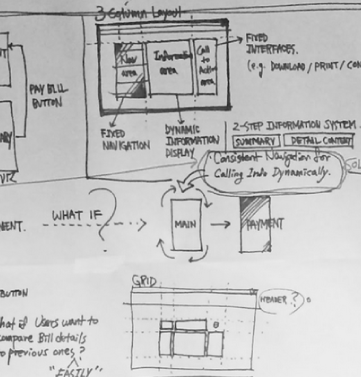 3 Column Layout
Nav area
Information area
Call to Action area
FIXED INTERFACES.
(e.g. DOWNLOAD / PRINT / CON
PAY BILL BUTTON
FIXED NAVIGATION
DYNAMIC INFORMATION DISPLAY
2-STEP INFORMATION SYSTEM.
SUMMARY
DETAIL CONTENT
Consistent Navigation for
Calling Info Dynamically.
MENT.
WHAT IF ?
MAIN
PAYMENT
GRID
HEADER,
BUTTON
hat if Users want to
ompare Bill details
o previous ones ?
"EASILY"